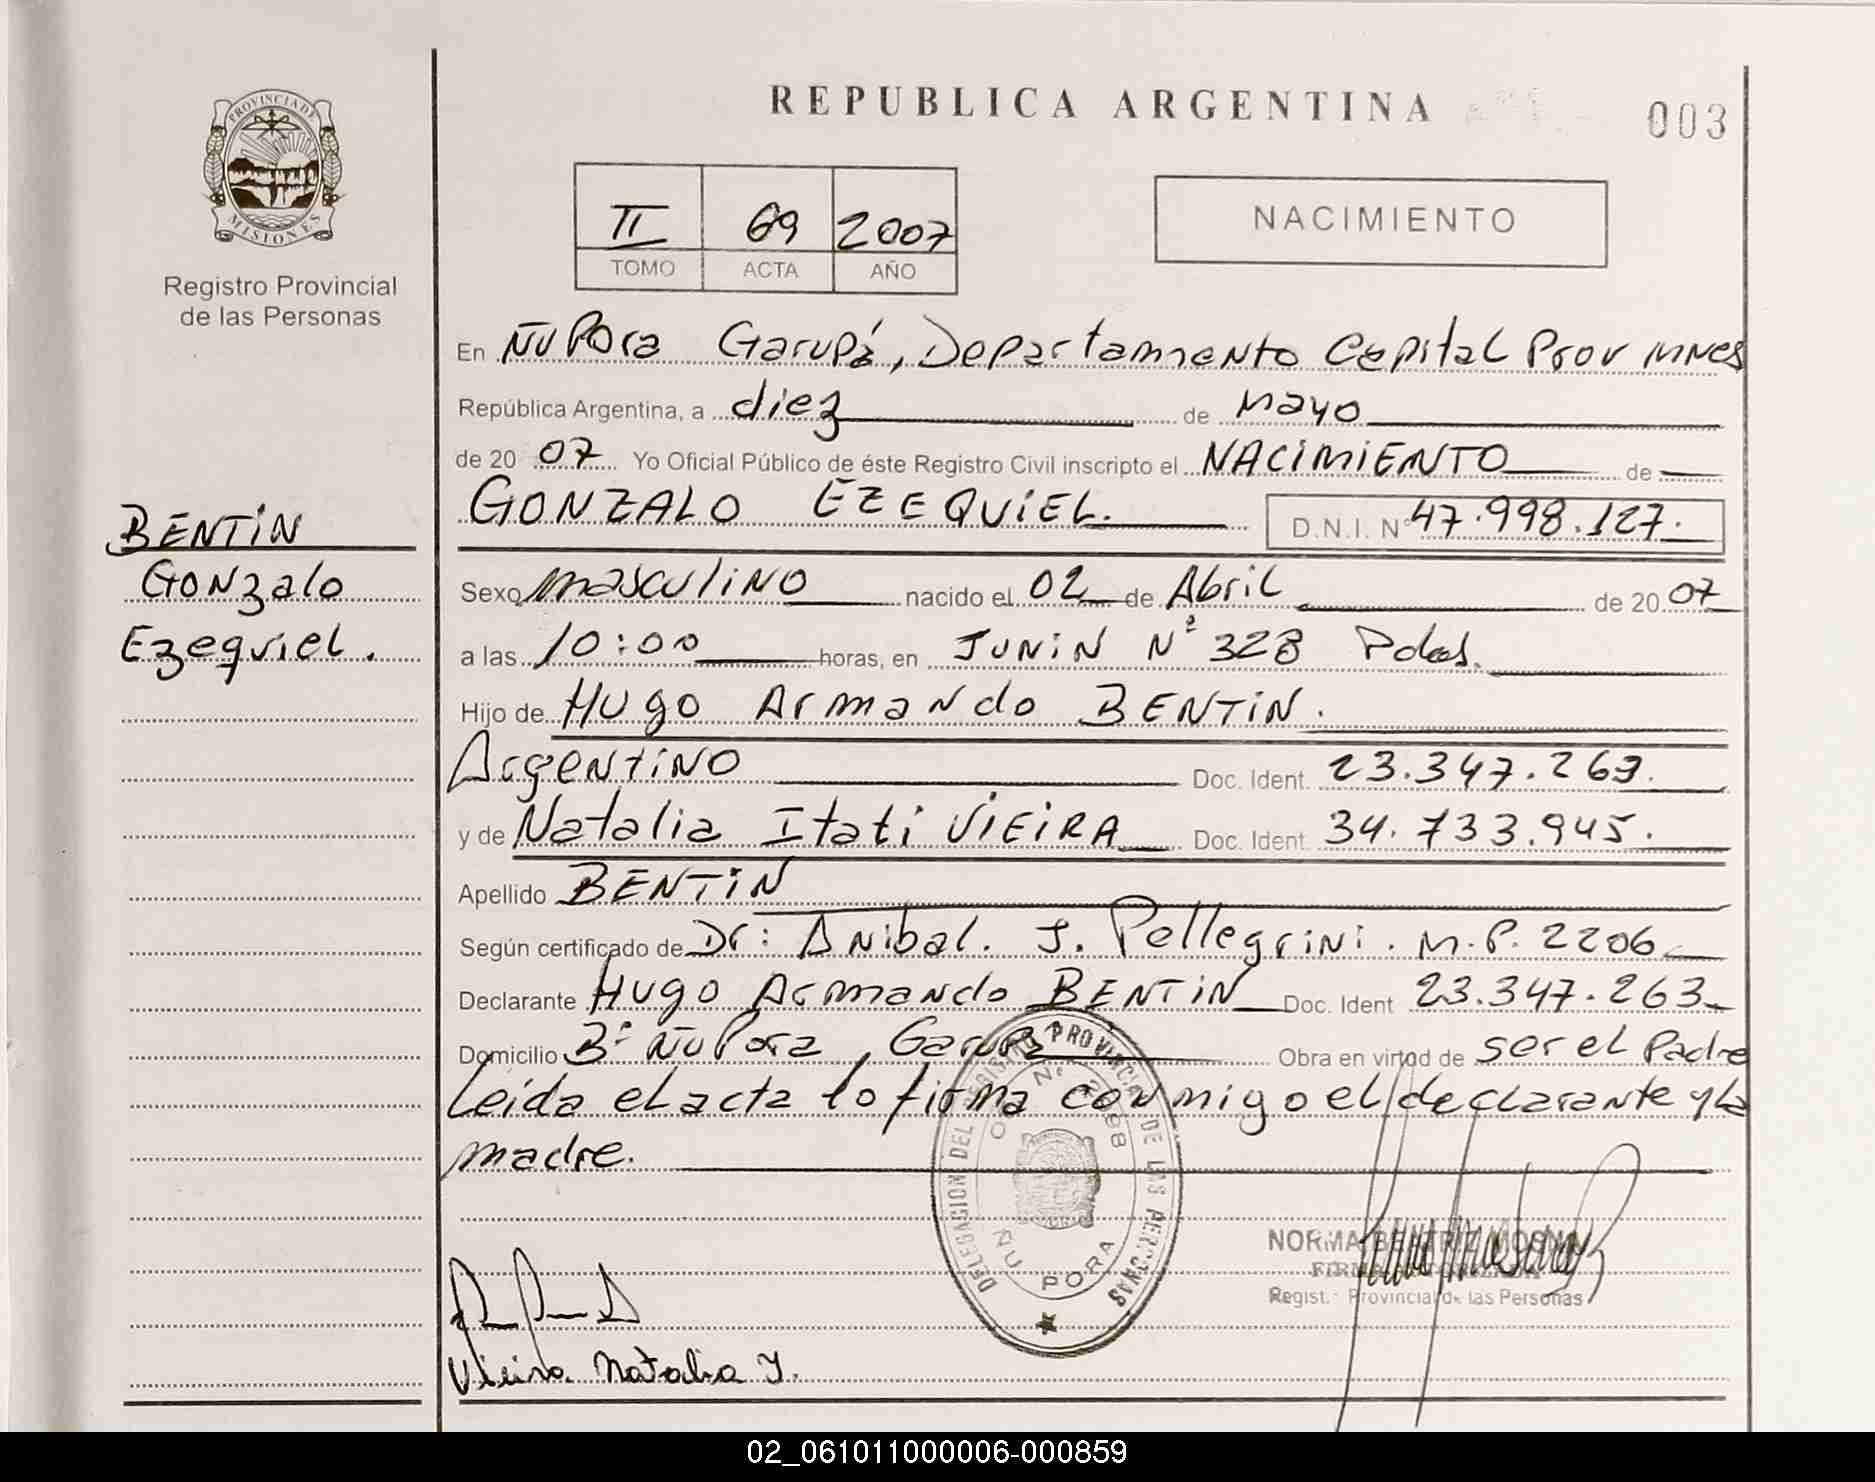 REPUBLICA ARGENTINA
003
PROVINCIA DE
MISIONES
Registro Provincial
de las Personas
II 69 2007
TOMO ACTA AÑO
NACIMIENTO
En Ñu Pora Garupá, Departamento Capital Prov Mnes
República Argentina, a diez de mayo
de 20 07 Yo Oficial Público de éste Registro Civil inscripto el NACIMIENTO de
GONZALO EZEQUIEL. D.N.I. N° 47.998.127.
BENTIN
Gonzalo
Ezequiel.
Sexo masculino nacido el 02 de Abril de 20 07
a las 10:00 horas, en JUNIN N° 328 Pdas.
Hijo de Hugo Armando BENTIN.
Argentino Doc. Ident. 23.347.263.
y de Natalia Itati VIEIRA Doc. Ident. 34.733.945.
Apellido BENTIN
Según certificado de Dr: Anibal. J. Pellegrini. M.P. 2206
Declarante Hugo Armando BENTIN Doc. Ident 23.347.263
Domicilio B° Ñu Pora, Garupa Obra en virtud de ser el Padre
Leida el acta lo firma conmigo el declarante y la
madre.
DELEGACION DEL REGISTRO PROVINCIAL DE LAS PERSONAS
ÑU PORA
NORMA BEATRIZ
FIRMA AUTORIZADA
Regist. Provincial de las Personas
Vieira Natalia I.
02_061011000006-000859